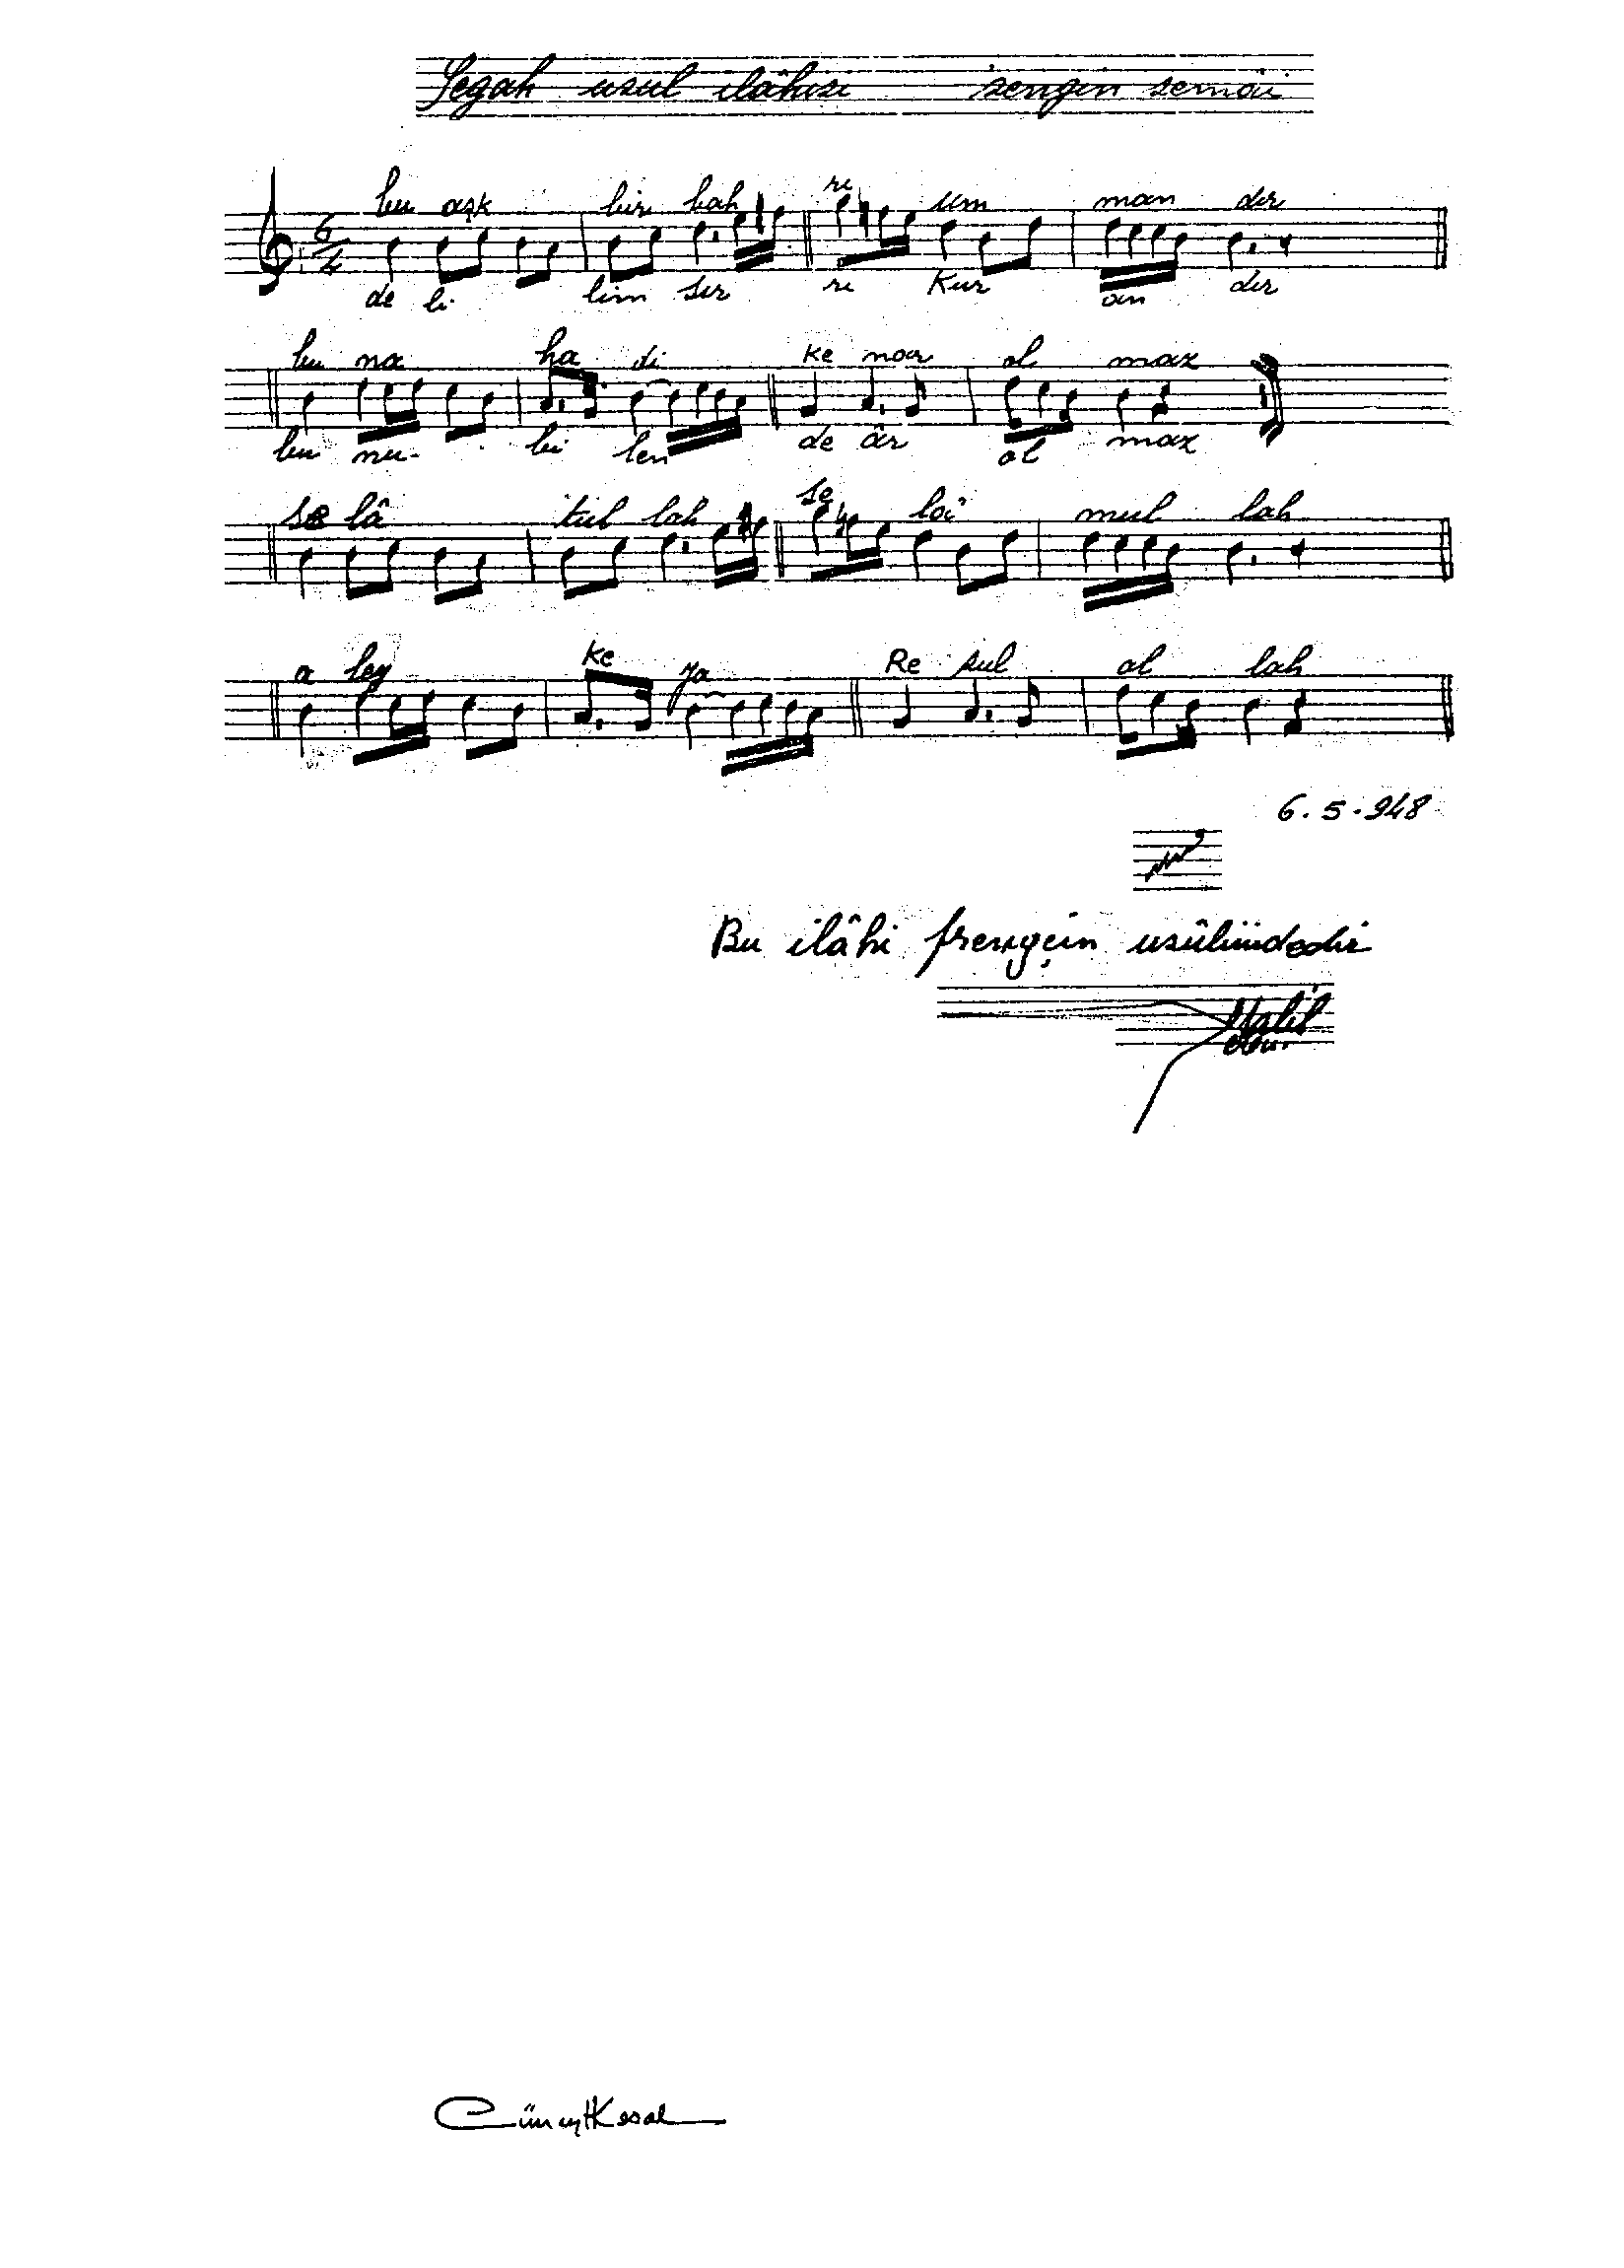 Segah usul ilâhisi sengin semâi
bu aşk bir bah ri um man dır
6/4
de li lim sır ri Kur an dır
bu na ha di ke nar ol maz
bu nu- bi len de âr ol maz
se lâ tul lah se lâ mul lah
a ley ke ya Re sul ol lah
6.5.948
Bu ilâhi frengçin usûlündedir
Halil
Cüneyt Kosal